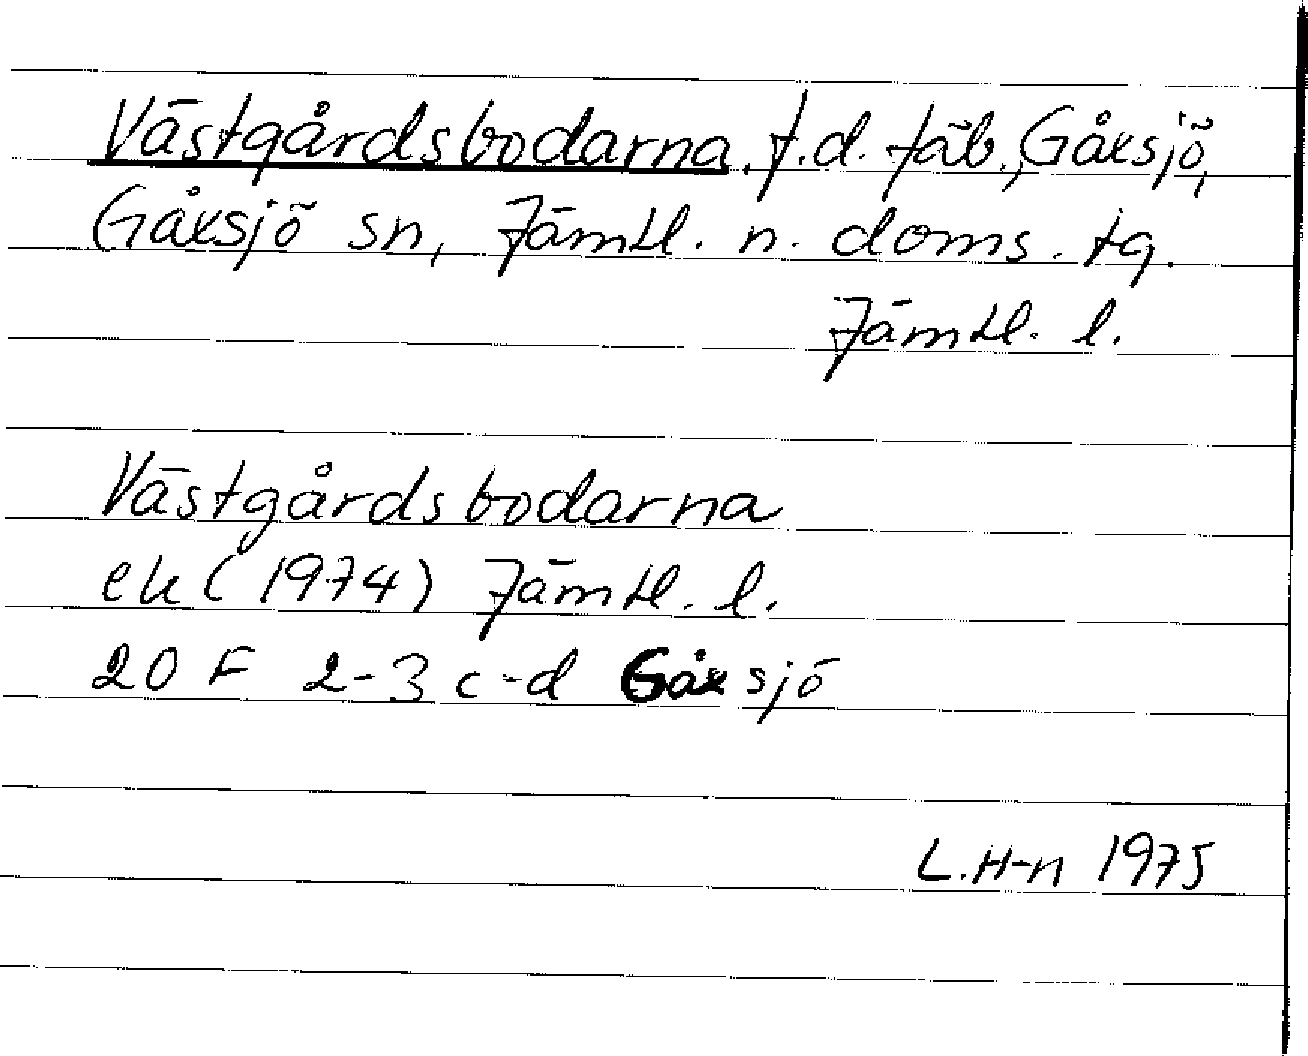 Västgårdsbodarna, f.d. fäb., Gåxsjö,
Gåxsjö sn, Jämtl. n. doms. tg.
Jämtl. l.
Västgårdsbodarna
ek (1974) Jämtl. l.
20 F 2-3 c-d Gåxsjö
L.H-n 1975